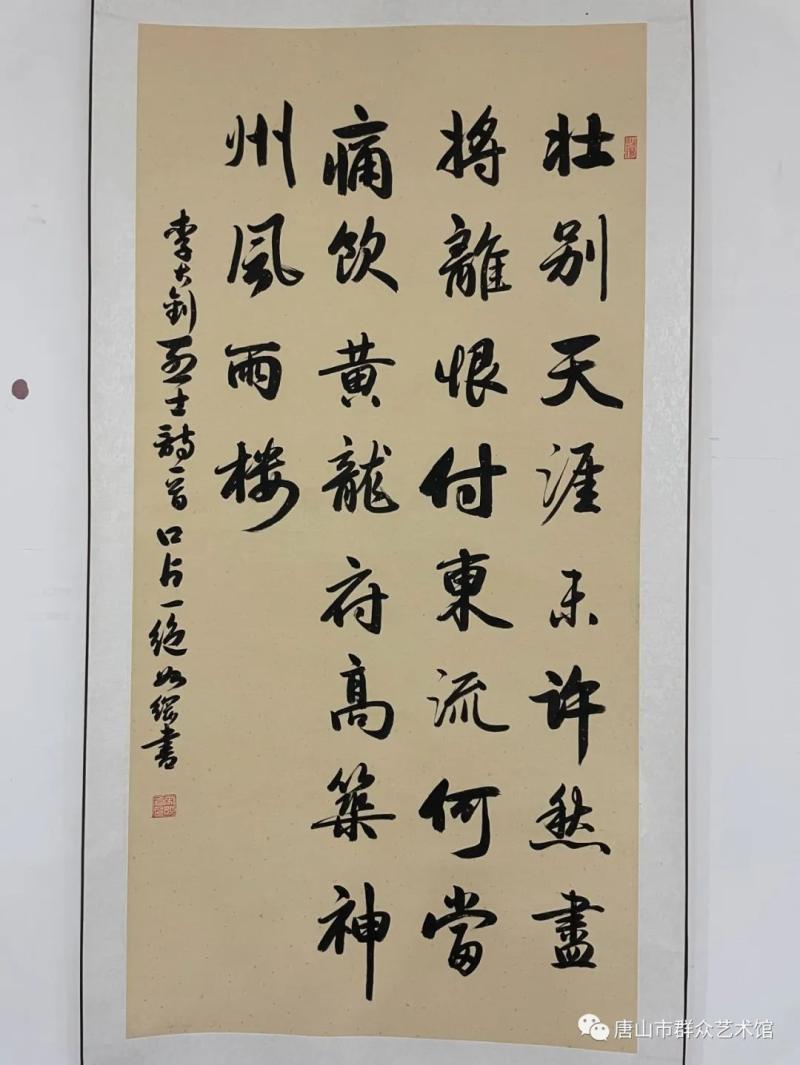 壮别天涯未许愁盡
将離恨付東流何當
痛飲黄龍府高築神
州風雨楼
李大釗烈士詩一首口占一絶如綱書
唐山市群众艺术馆